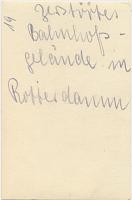 19
zerstörtes
Bahnhofs-
gelände in
Rotterdamm